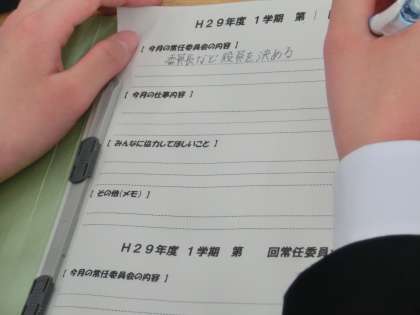 H29年度 1学期 第
[ 今月の常任委員会の内容 ]
委員長など役員を決める
[ 今月の仕事内容 ]
[ みんなに協力してほしいこと ]
[ その他(メモ) ]
H29年度 1学期 第 回常任委員
[ 今月の常任委員会の内容 ]